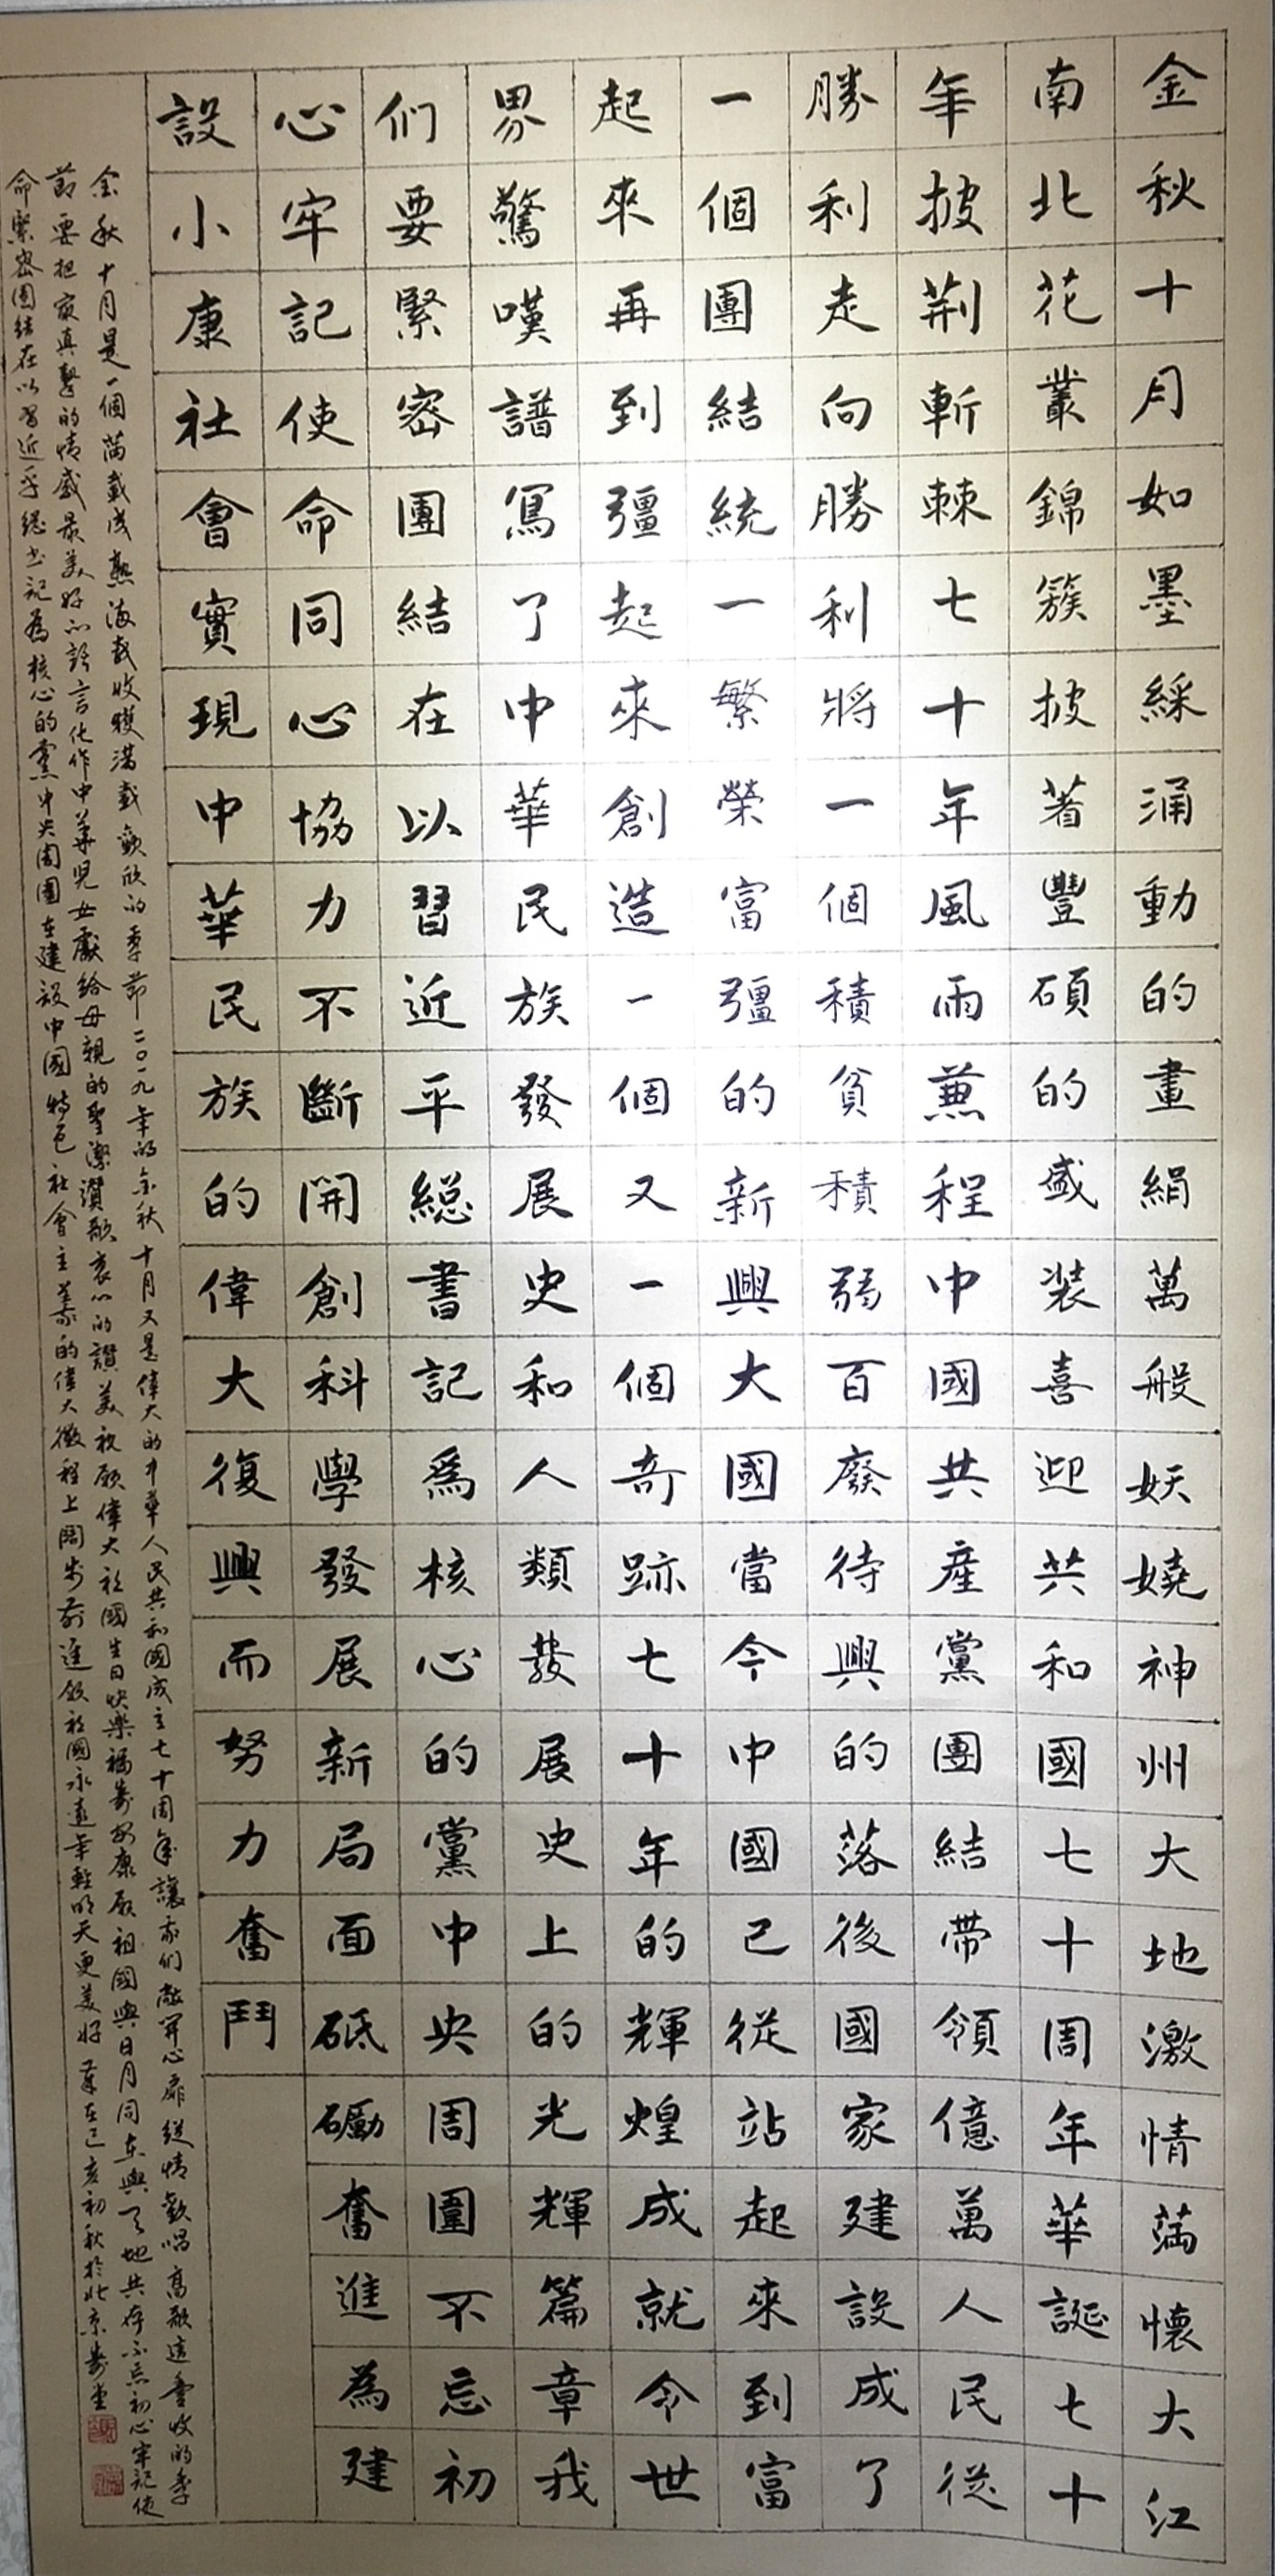 金秋十月如墨綵涌動的畫絹萬般妖嬈神州大地激情滿懷大江
南北花叢錦簇披著豐碩的盛装喜迎共和國七十周年華誕七十
年披荆斬棘七十年風雨蒹程中國共産黨團結帶領億萬人民從
勝利走向勝利將一個積貧積弱百廢待興的落後國家建設成了
一個團結統一繁榮富彊的新興大國當今中國已從站起來到富
起來再到彊起來創造一個又一個奇跡七十年的輝煌成就令世
界驚嘆譜寫了中華民族發展史和人類發展史上的光輝篇章我
们要緊密團結在以習近平總書記爲核心的黨中央周圍不忘初
心牢記使命同心協力不斷開創科學發展新局面砥礪奮進為建
設小康社會實現中華民族的偉大復興而努力奮鬥
金秋十月是一個滿載成熟滿載收獲滿載歡欣的季節二〇一九年的金秋十月又是偉大的中華人民共和國成立七十周年讓我們敞開心扉縱情歡唱高歌這豐收的季
節要把最真摯的情感最美好的語言化作中華兒女獻給母親的聖潔讚歌衷心的讚美祝願偉大祖國生日快樂福壽安康願祖國與日月同在與天地共存不忘初心牢記使
命緊密團結在以習近平總书記為核心的黨中央周圍在建設中國特色社會主義的偉大徵程上闊步前進願祖國永遠年輕明天更美好 在己亥初秋於北京